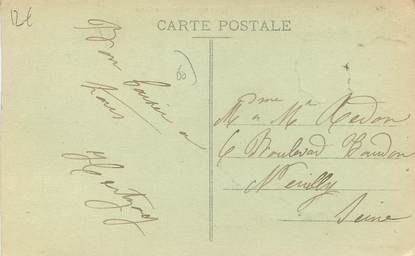 12€
CARTE POSTALE
60
Bon baiser à
tous
Mme & Mr Redon
6 Boulevard Bourdon
Neuilly
Seine